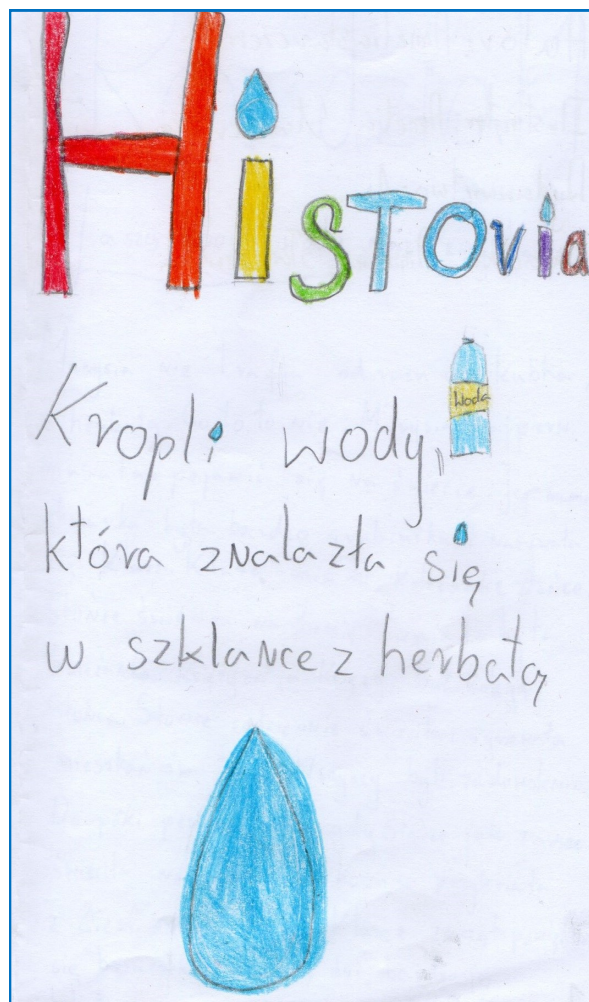 Historia
Woda
Kropli wody,
która znalazła się
w szklance z herbatą